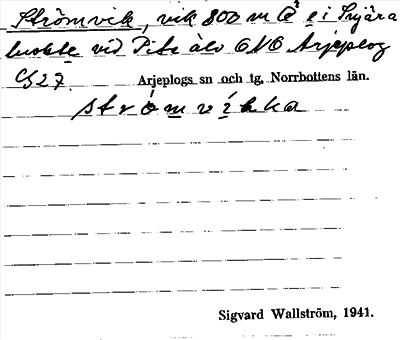 Strömvik, vik 800 m Ö e i Tujära
luokte vid Pite älv ONO Arjeplog
Arjeplogs sn och tg, Norrbottens län.
strȯmvikka
Sigvard Wallström, 1941.